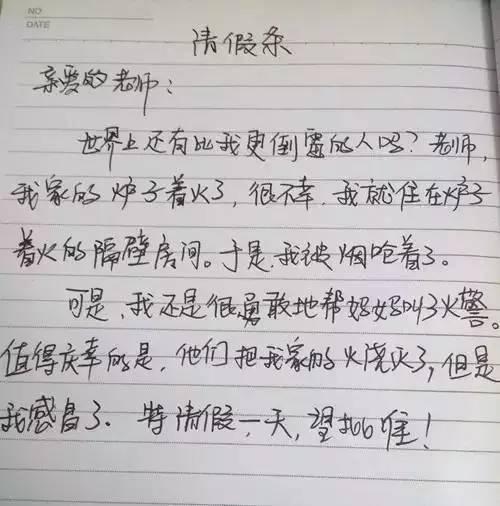 NO
DATE
请假条
亲爱的老师：
世界上还有比我更倒霉的人吗？老师，
我家的炉子着火了，很不幸，我就住在炉子
着火的隔壁房间。于是，我被烟呛着了。
可是，我还是很勇敢地帮妈妈叫了火警。
值得庆幸的是，他们把我家的火浇灭了，但是
我感冒了．特请假一天，望批准！